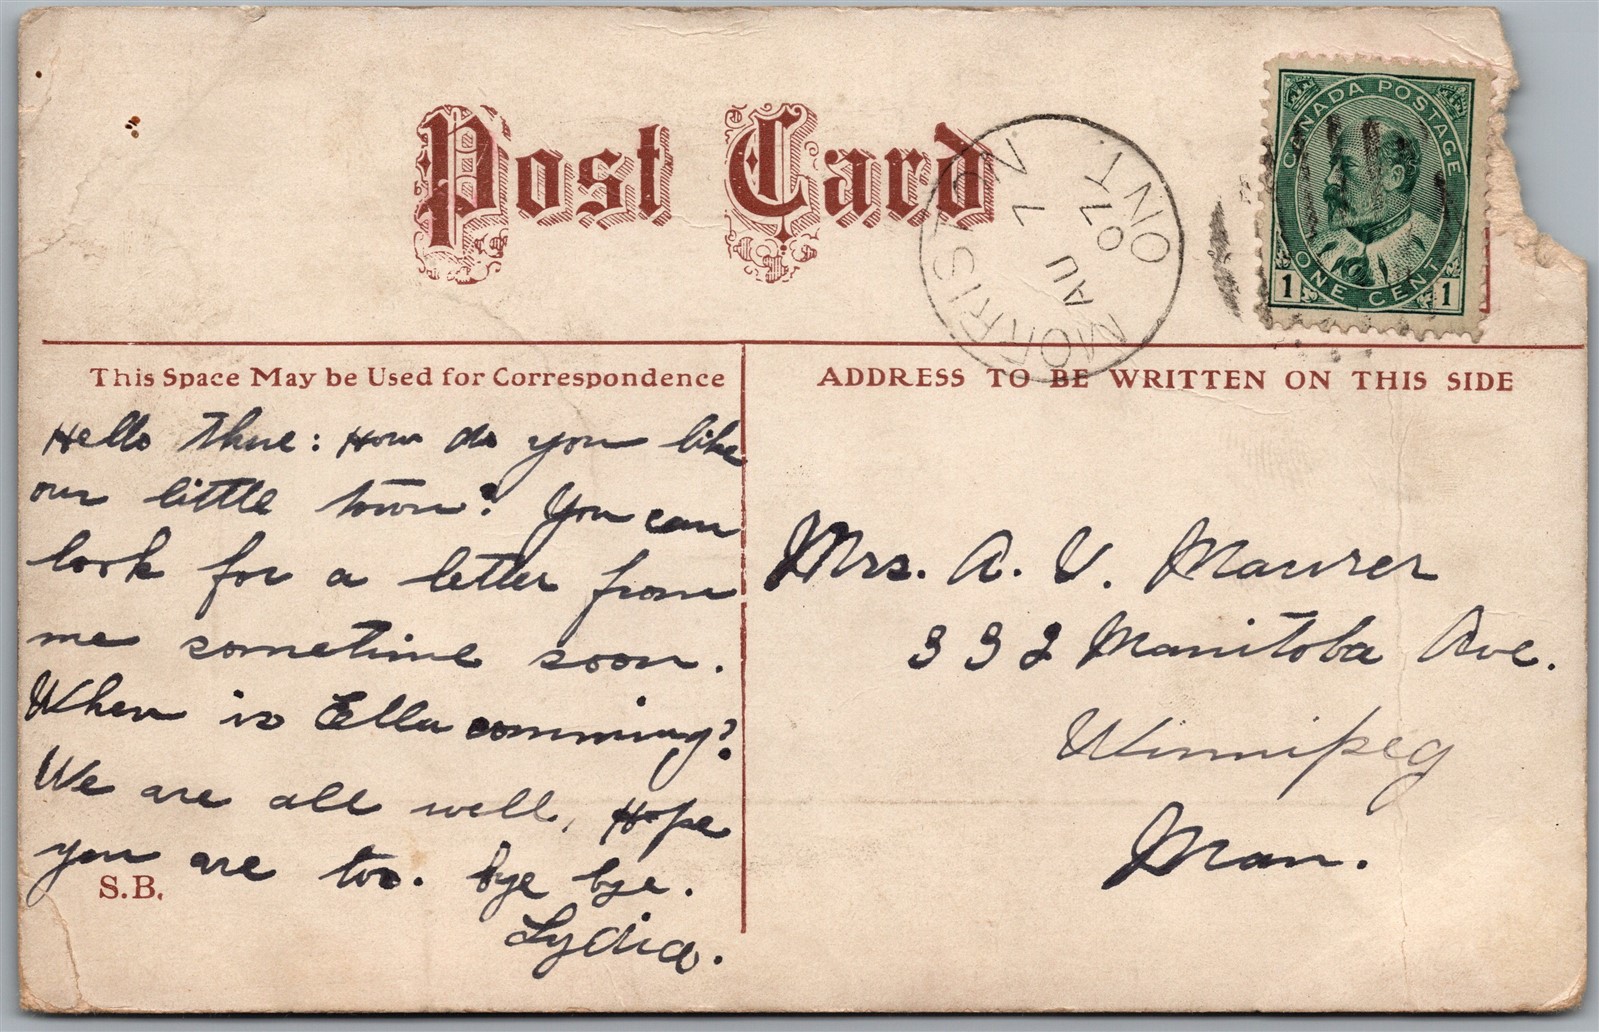 Post Card
MORRISTON. ONT.
AU 7
07
CANADA POSTAGE
1 ONE CENT 1
This Space May be Used for Correspondence
ADDRESS TO BE WRITTEN ON THIS SIDE
Hello : How do you like
our little town? You can
look for a letter from
me sometime soon.
When is Ella comming?
We are all well, Hope
you are too. bye bye.
Lydia.
S.B.
Mrs. A. V. Maurer
332 Manitoba Ave.
Winnipeg
Man.